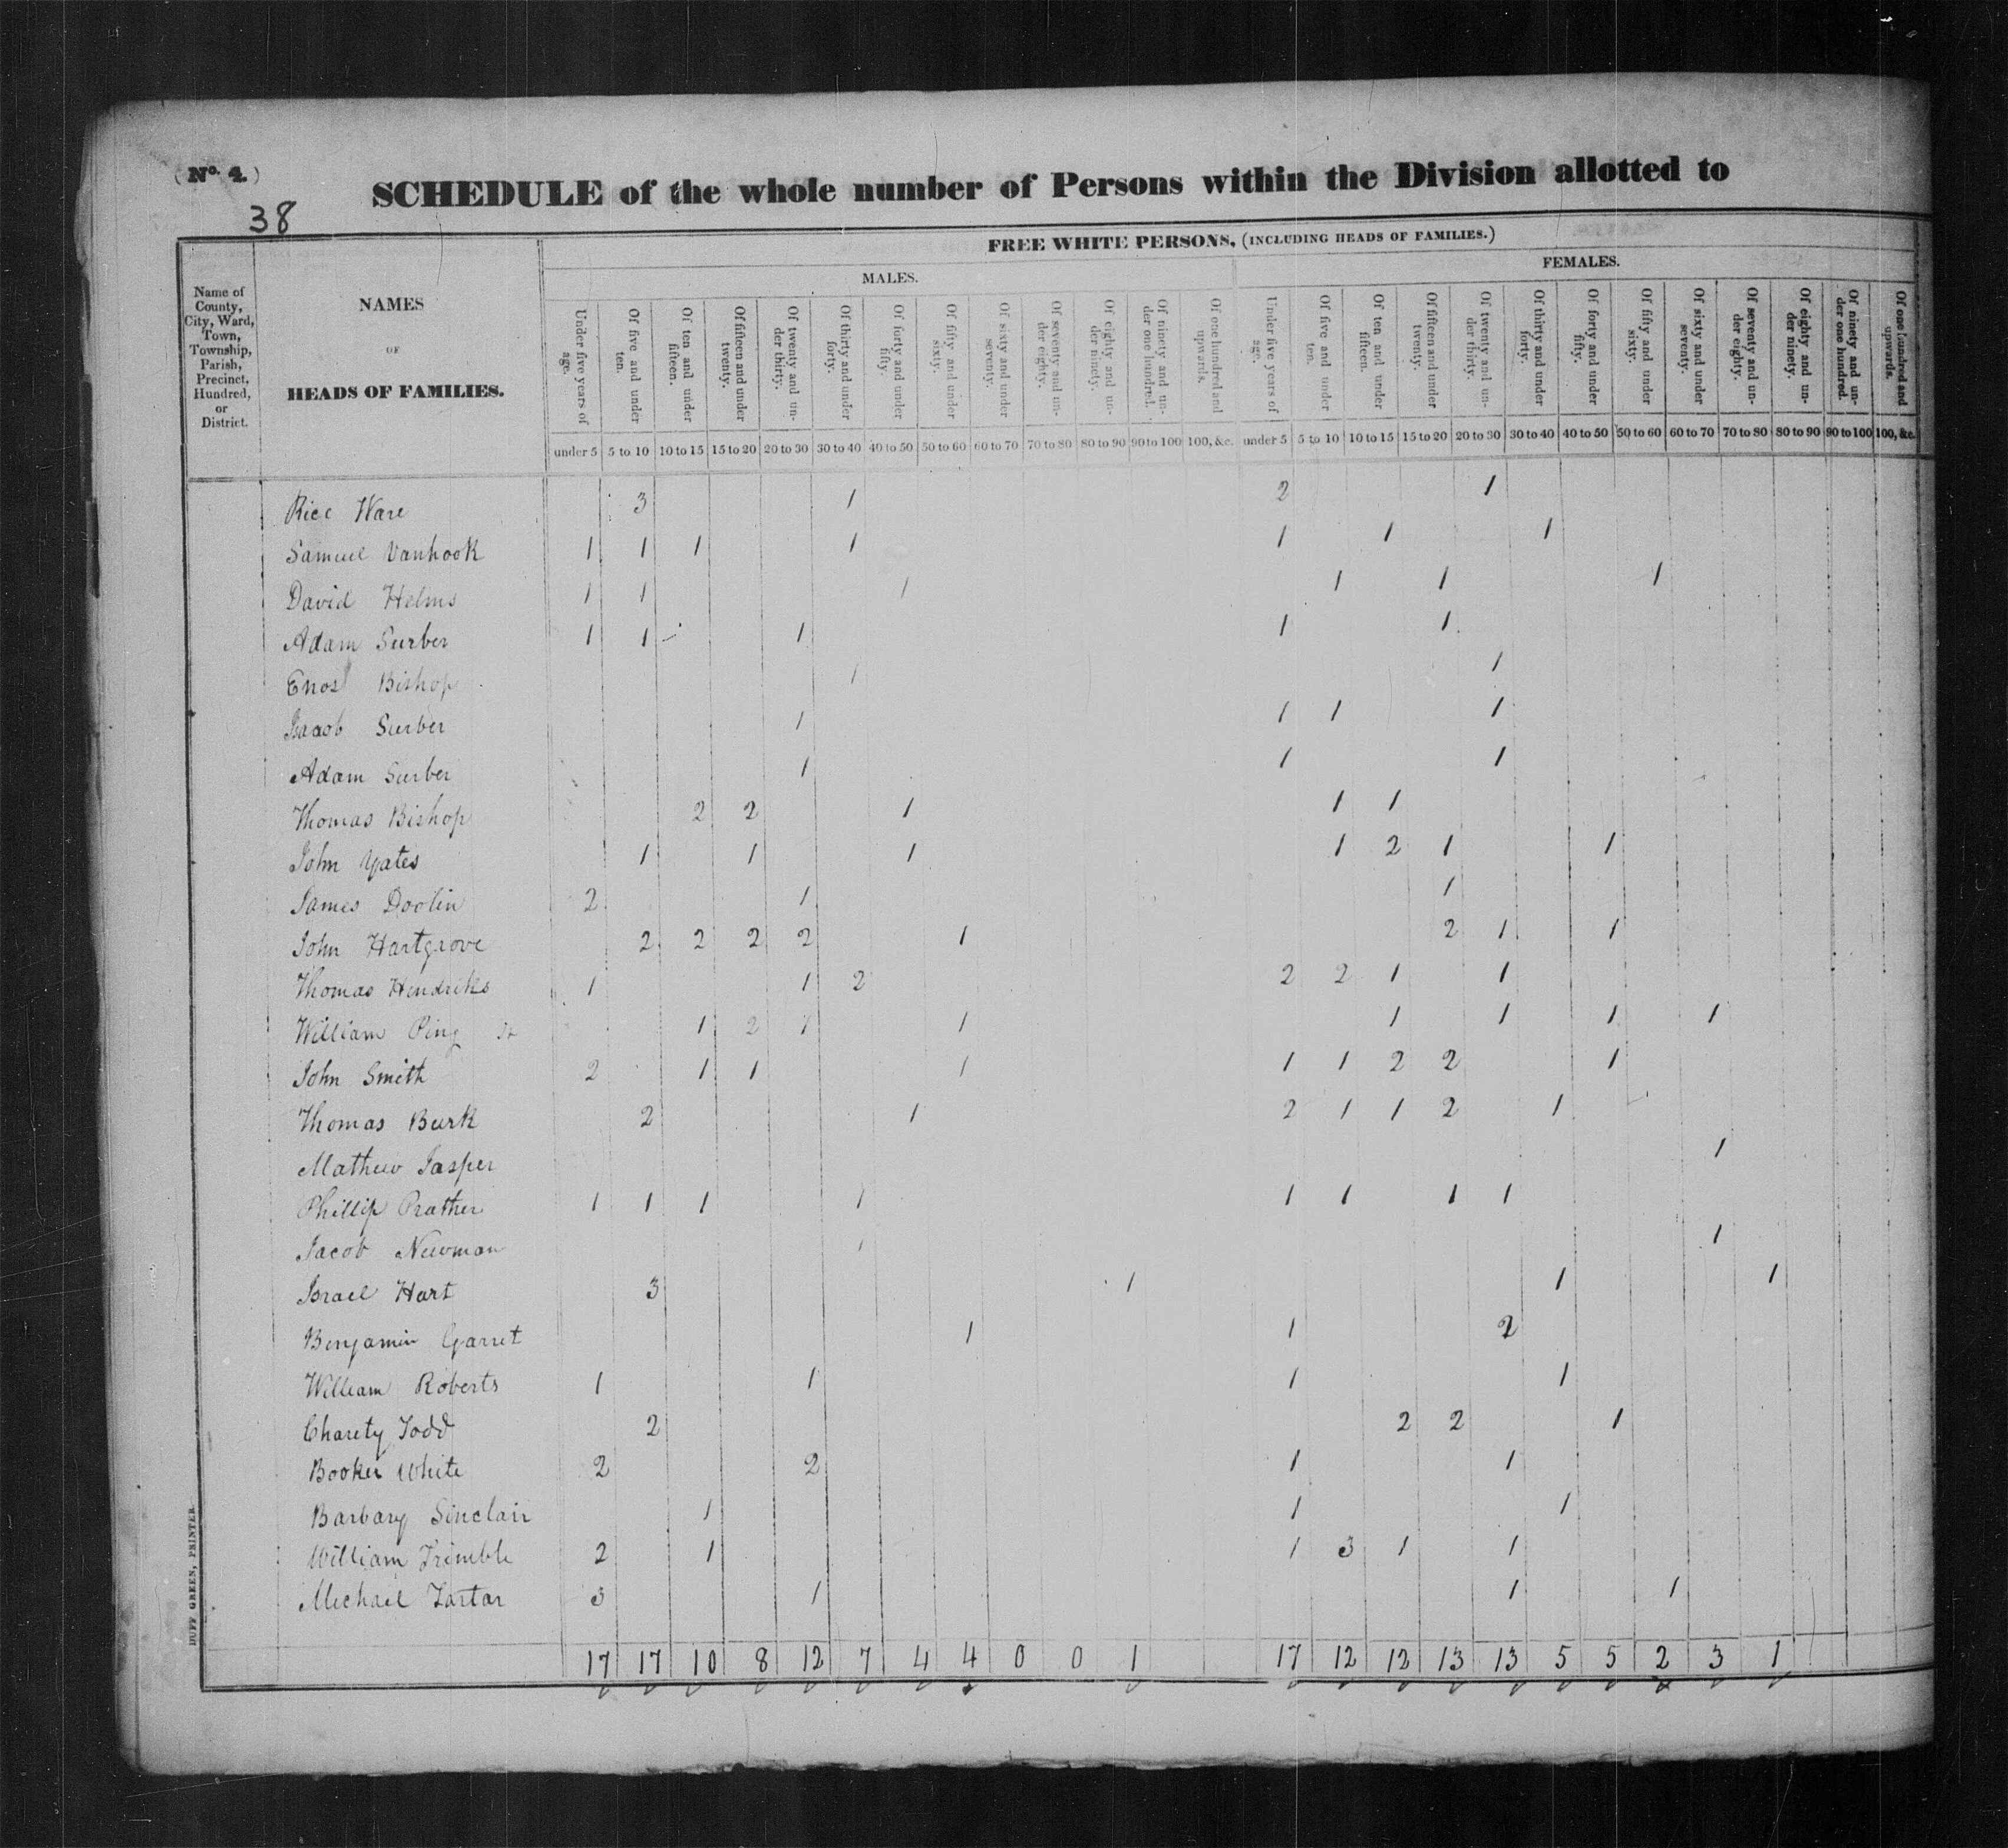 (No. 4.)
38
SCHEDULE of the whole number of Persons within the Division allotted to
FREE WHITE PERSONS, (INCLUDING HEADS OF FAMILIES.)
MALES. FEMALES.
Name of County, City, Ward, Town, Township, Parish, Precinct, Hundred, or District.
NAMES
OF
HEADS OF FAMILIES.
Under five years of age. Of five and under ten. Of ten and under fifteen. Of fifteen and under twenty. Of twenty and under thirty. Of thirty and under forty. Of forty and under fifty. Of fifty and under sixty. Of sixty and under seventy. Of seventy and under eighty. Of eighty and under ninety. Of ninety and under one hundred. Of one hundred and upwards. Under five years of age. Of five and under ten. Of ten and under fifteen. Of fifteen and under twenty. Of twenty and under thirty. Of thirty and under forty. Of forty and under fifty. Of fifty and under sixty. Of sixty and under seventy. Of seventy and under eighty. Of eighty and under ninety. Of ninety and under one hundred. Of one hundred and upwards.
under 5 5 to 10 10 to 15 15 to 20 20 to 30 30 to 40 40 to 50 50 to 60 60 to 70 70 to 80 80 to 90 90 to 100 100, &c. under 5 5 to 10 10 to 15 15 to 20 20 to 30 30 to 40 40 to 50 50 to 60 60 to 70 70 to 80 80 to 90 90 to 100 100, &c.
Rice Ware 3 1 2 1
Samuel Vanhook 1 1 1 1 1 1 1
David Helms 1 1 1 1 1 1
Adam Surber 1 1 1 1 1
Enos Bishop 1 1
Isaaob Surber 1 1 1 1
Adam Surber 1 1 1
Thomas Bishop 2 2 1 1 1
John Yates 1 1 1 1 2 1 1
James Doolin 2 1 1
John Hartgrove 2 2 2 2 1 2 1 1
Thomas Hendriks 1 1 2 2 2 1 1
William Ping 1 2 1 1 1 1 1 1
John Smith 2 1 1 1 1 1 2 2 1
Thomas Burk 2 1 2 1 1 2 1
Mathew Jasper 1
Phillip Prather 1 1 1 1 1 1 1 1
Jacob Newman 1 1
Israel Hart 3 1 1 1
Benjamin Garret 1 1 2
William Roberts 1 1 1 1
Charety Todd 2 2 2 1
Booker White 2 2 1 1
Barbary Sinclair 1 1 1
William Trimble 2 1 1 3 1 1
Michael Tartar 3 1 1 1
17 17 10 8 12 7 4 4 0 0 1 17 12 12 13 13 5 5 2 3 1
DUFF GREEN, PRINTER